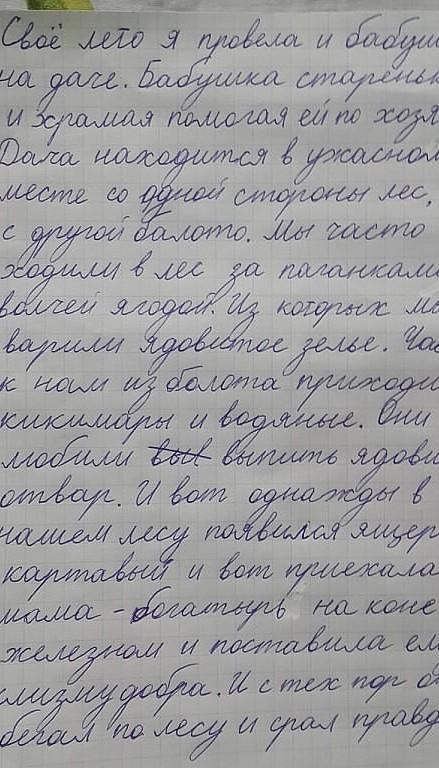 Своё лето я провела и бабуш
на даче. Бабушка стареньк
и храмая помогая ей по хозя
Дача находится в ужасном
месте со одной стороны лес,
с другой балото. Мы часто
ходили в лес за паганками
волчей ягодой. Из которых м
варили ядовитое зелье. Час
к нам из болота приходи
кикимары и водяные. Они
любили выпить ядови
отвар. И вот однажды в
нашем лесу появился ящер
картавый и вот приехала
мама - богатырь на коне
железном и поставила ем
клизму добра. И с тех пор о
бегал по лесу и срал правд